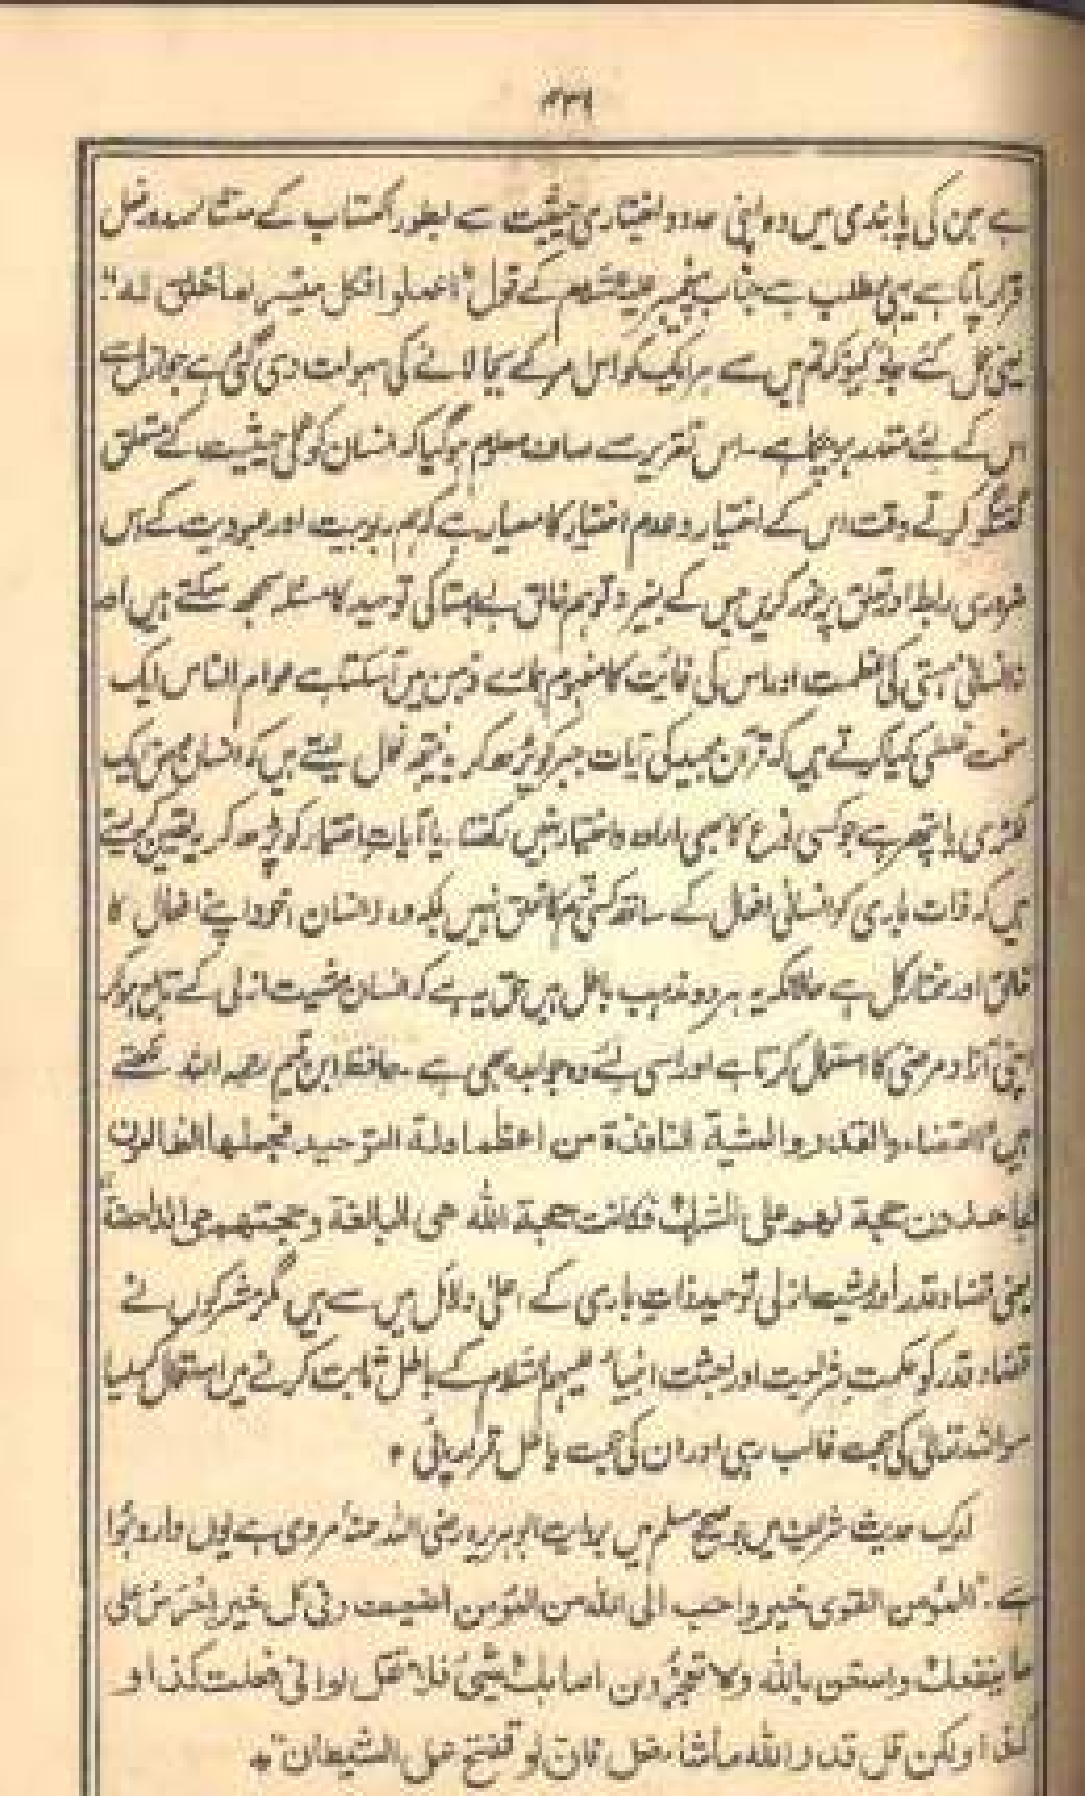 ۴۳۶
ہے جن کی پابندی میں وہ اپنی محدود اختیاری حیثیت سے بطور اکتساب کے منشا صدور فعل
قرار پاتا ہے یہی مطلب ہے جناب پیغمبر علیہ السلام کے قول "اعملوا فکل میسر لما خلق لہ"
یعنی عمل کئے جاؤ کیونکہ تم میں سے ہر ایک کو اس امر کے بجا لانے کی سہولت دی گئی ہے جو ازل سے
اس کے لئے مقدر ہو چکا ہے۔ اس تقریر سے صاف معلوم ہو گیا کہ انسان کو عملی حیثیت کے متعلق
گفتگو کرتے وقت اس کے اختیار و عدم اختیار کا معیار ہے کہ ہم ربوبیت اور عبودیت کے اس
ضروری رابطہ اور تعلق پر غور کریں جس کے بغیر نہ تو ہم خالق بے ہمتا کی توحید کا مسئلہ سمجھ سکتے ہیں اور
نہ انسانی ہستی کی عظمت اور اس کی غائیت کا مفہوم ہمارے ذہن میں آ سکتا ہے عوام الناس ایک
سخت غلطی کیا کرتے ہیں کہ قرآن مجید کی آیات جبر کو پڑھ کر یہ نتیجہ نکال لیتے ہیں کہ انسان محض ایک
لکڑی یا پتھر ہے جو کسی نوع کا بھی ارادہ و اختیار نہیں رکھتا۔ یا آیات اختیار کو پڑھ کر یہ یقین کر لیتے
ہیں کہ ذات باری کو انسانی افعال کے ساتھ کسی قسم کا تعلق نہیں بلکہ وہ انسان خود اپنے افعال کا
خالق اور مختار کل ہے حالانکہ یہ ہر دو مذہب باطل ہیں حق یہ ہے کہ انسان مشیت ازلی کے تابع ہو کر
اپنی آزاد مرضی کا استعمال کرتا ہے اور اسی لئے وہ جوابدہ بھی ہے۔ حافظ ابن قیم رحمہ اللہ لکھتے
ہیں "القضاء والقدر والمشیة النافذة من اعظم ادلة التوحید فجعلها الظالمون
الجاحدون حجة لهم على الشرك فكانت حجة الله هى البالغة وحجتهم هى الداحضة"
یعنی قضا و قدر اور مشیت ازلی توحید ذات باری کے اعلیٰ دلائل میں سے ہیں مگر مشرکوں نے
قضا و قدر کو حکمت و شریعت اور بعثت انبیاء علیہم السلام کے باطل ثابت کرنے میں استعمال کیا
سو اللہ تعالیٰ کی حجت غالب رہی اور ان کی حجت باطل قرار پائی *
ایک حدیث شریف میں جو صحیح مسلم میں بروایت ابو ہریرہ رضی اللہ عنہ مروی ہے یوں وارد ہوا
ہے۔ "المؤمن القوى خير واحب الى الله من المؤمن الضعيف وفى كل خير احرص على
ما ينفعك واستعن بالله ولا تعجز وان اصابك شيئ فلا تقل لو انى فعلت كذا و
كذا ولكن قل قدر الله ماشاء فعل فان لو تفتح عمل الشيطان" *